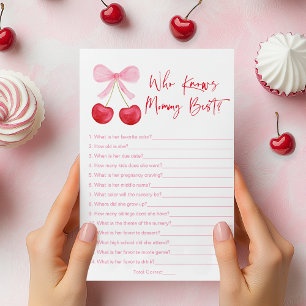 Who Knows
Mommy Best?
1. What is her favorite color?
2. How old is she?
3. What is her due date?
4. How many kids does she want?
5. What is her pregnancy craving?
6. What is her middle name?
7. What color will the nursery be?
8. Where did she grow up?
9. How many siblings does she have?
10. What is the theme of the nursery?
11. What is her favorite dessert?
12. What high school did she attend?
13. What is her favorite movie genre?
14. What is her favorite drink?
Total Correct: